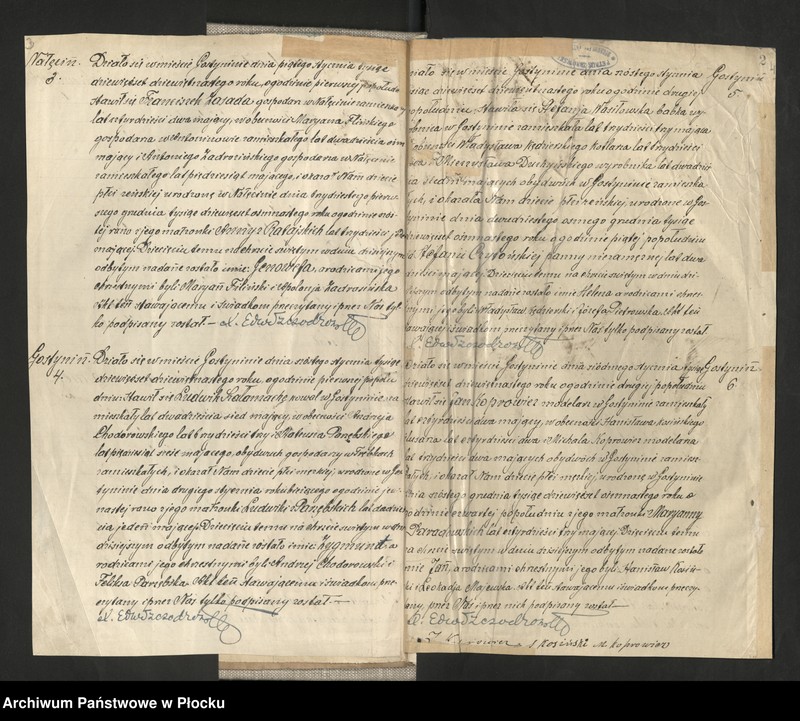 Nałęcin.
3.
Działo się w mieście Gostyninie dnia piątego stycznia tysiąc
dziewięćset dziewiętnastego roku, o godzinie pierwszej popołudn.
Stawił się Franciszek Zasada, gospodarz w Nałęcinie zamieszkały
lat czterdzieści dwa mający, w obecności Maryana Flińskiego
gospodarza w Antoninowie zamieszkałego lat dwadzieścia
mający i Antoniego Zadrosińskiego gospodarza w Nałęcinie
zamieszkałego lat pięćdziesiąt mającego, i okazał Nam dziecię
płci żeńskiej urodzone w Nałęcinie dnia trzydziestego pierw-
szego grudnia tysiąc dziewięćset osiemnastego roku o godzinie
rano z jego małżonki Maryi Ratajskich lat trzydzieści
mającej. Dziecięciu temu na chrzcie świętym w dniu dzisiejszym
odbytym nadane zostało imię: Genowefa, a rodzicami jego
chrzestnymi byli Maryan Fliński i Apolonja Zadrosińska
Akt ten stawającemu i świadkom przeczytany i przez Nas tyl-
ko podpisany został. —
Gostynin.
4.
Działo się w mieście Gostyninie dnia szóstego stycznia tysiąc
dziewięćset dziewiętnastego roku, o godzinie pierwszej popołu-
dniu. Stawił się Ludwik Salamacha kowal w Gostyninie za-
mieszkały lat dwadzieścia siedm mający, w obecności Andrzeja
Chodorowskiego lat trzydzieści trzy i Mateusza Parębskiego
lat mającego, obydwóch gospodarzy w
zamieszkałych, i okazał Nam dziecię płci męzkiej, urodzone w Gos-
tyninie dnia drugiego stycznia roku bieżącego o godzinie je-
nastej rano z jego małżonki Ludwiki z Parębskich lat dwadzie-
ścia jeden mającej. Dziecięciu temu na chrzcie świętym w dniu
dzisiejszym odbytym nadane zostało imię: Zygmunt, a
rodzicami jego chrzestnymi byli: Andrzej Chodorowski i
Feliksa Parębska. Akt ten stawającemu i świadkom prze-
czytany i przez Nas tylko podpisany został. —
2
Gostynin
5.
Działo się w mieście Gostyninie dnia szóstego stycznia
tysiąc dziewięćset dziewiętnastego roku o godzinie drugiej
popołudniu. Stawiła się Stefanja Wasiłowska, babka wy-
robnica w Gostyninie zamieszkała, lat trzydzieści trzy mająca
w obecności Władysława Kędzierskiego lat trzydzieści
i Mieczysława Duchyńskiego wyrobnika lat dwadzieś-
cia siedm mających obydwóch w Gostyninie zamieszka-
łych, i okazała Nam dziecię płci żeńskiej, urodzone w Gos-
tyninie dnia dwudziestego ósmego grudnia tysiąc
dziewięćset osiemnastego roku o godzinie piątej popołudniu
z Stefanii panny niezamężnej lat dwa-
dzieścia mającej. Dziecięciu temu na chrzcie świętym w dniu dzi-
siejszym odbytym nadane zostało imię Helena a rodzicami chrzes-
tnymi jego byli Władysław Kędzierski i Józefa Piotrowska. Akt ten
stawającej i świadkom przeczytany i przez Nas tylko podpisany został
Gostynin
6
Działo się w mieście Gostyninie dnia siódmego stycznia tysiąc
dziewięćset dziewiętnastego roku o godzinie drugiej popołudniu
Stawił się Jan Koprowicz modelarz w Gostyninie zamieszkały
lat czterdzieści dwa mający, w obecności Stanisława Kosińskiego
ślusarza lat czterdzieści dwa i Michała Koprowicz modelarza
lat trzydzieści dwa mających obydwóch w Gostyninie zamiesz-
kałych, i okazał Nam dziecię płci męzkiej, urodzone w Gostyninie
dnia szóstego grudnia tysiąc dziewięćset osiemnastego roku o
godzinie czwartej popołudniu z jego małżonki Maryanny
lat czterdzieści trzy mającej. Dziecięciu temu
na chrzcie świętym w dniu dzisiejszym odbytym nadane zostało
imię Jan, a rodzicami chrzestnymi jego byli: Stanisław Kosiń-
ski i Leokadja Majewska. Akt ten stawającemu i świadkom przeczy-
tany, przez Nas i przez nich podpisany został —
J. Koprowicz S Kosiński M. Koprowicz
Archiwum Państwowe w Płocku